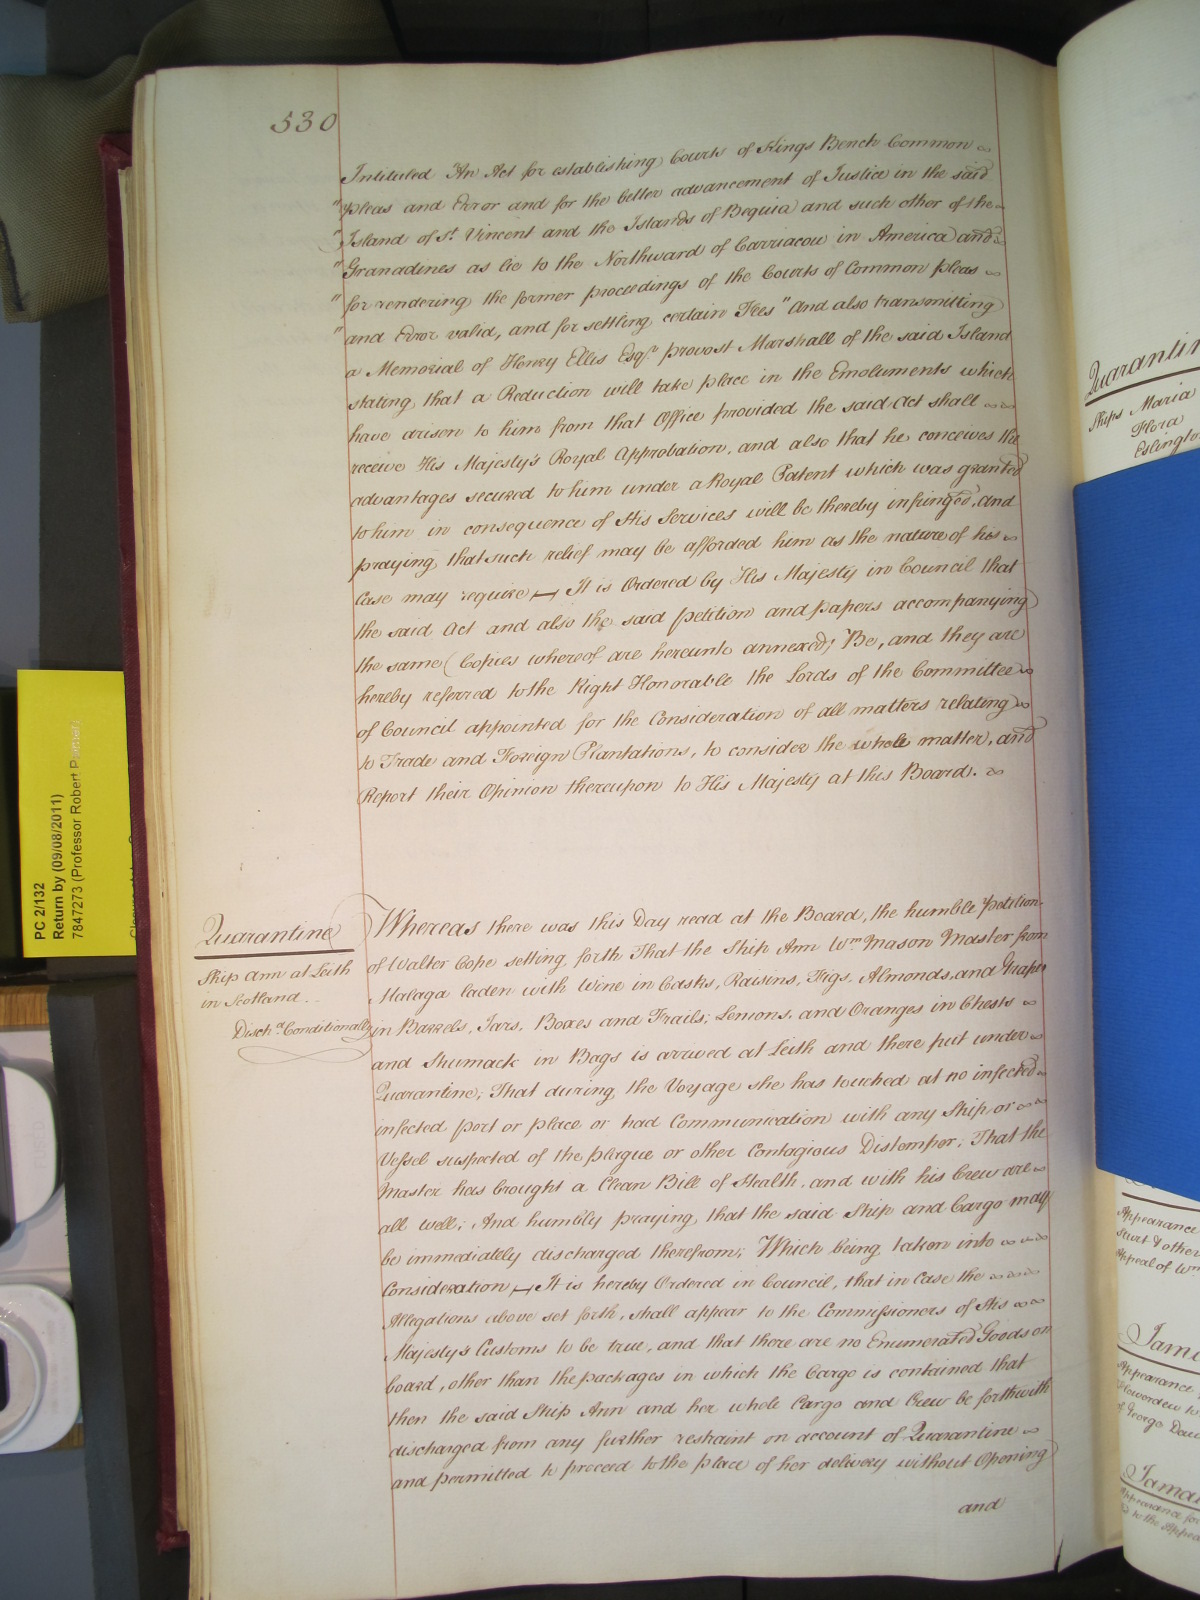 530
Intituled "An Act for establishing Courts of Kings Bench Common
"Pleas and Error and for the better advancement of Justice in the said
"Island of St. Vincent and the Islands of Bequia and such other of the
"Granadines as lie to the Northward of Carriacou in America and
"for rendering the former proceedings of the Courts of Common Pleas
"and Error valid, and for settling certain Fees" And also transmitting
a Memorial of Henry Ellis Esqr. Provost Marshall of the said Island
stating that a Reduction will take place in the Emoluments which
have arisen to him from that Office provided the said Act shall
receive His Majesty's Royal Approbation, and also that he conceives the
advantages secured to him under a Royal Patent which was granted
to him in consequence of His Services will be thereby infringed, and
praying that such relief may be afforded him as the nature of his
Case may require — It is Ordered by His Majesty in Council that
the said Act and also the said Petition and papers accompanying
the same (Copies whereof are hereunto annexed) Be, and they are
hereby referred to the Right Honorable the Lords of the Committee
of Council appointed for the Consideration of all matters relating
to Trade and Foreign Plantations, to consider the whole matter, and
Report their Opinion thereupon to His Majesty at this Board.
Quarantine
Ship Ann at Leith
in Scotland..
Dischd. Conditionally
Whereas there was this Day read at the Board, the humble Petition
of Walter Cope setting forth That the Ship Ann Wm. Mason Master from
Malaga laden with Wine in Casks, Raisins, Figs, Almonds, and Grapes
in Barrels, Jars, Boxes and Frails; Lemons, and Oranges in Chests
and Shumack in Bags is arrived at Leith and there put under
Quarantine; That during the Voyage she has touched at no infected
infected port or place or had Communication with any Ship or
Vessel suspected of the plague or other Contagious Distemper; That the
Master has brought a Clean Bill of Health, and with his Crew are
all well; And humbly praying that the said Ship and Cargo may
be immediately discharged therefrom; Which being taken into
Consideration — It is hereby Ordered in Council, that in Case the
Allegations above set forth, shall appear to the Commissioners of His
Majesty's Customs to be true, and that there are no Enumerated Goods on
board, other than the packages in which the Cargo is contained that
then the said Ship Ann and her whole Cargo and Crew be forthwith
discharged from any further restraint on account of Quarantine
and permitted to proceed to the place of her delivery without Opening
and
PC 2/132
Return by (09/08/2011)
7847273 (Professor Robert
Quarantin
Ships Maria
Flora
Eslingto
Appearance
& other
Appeal of Wm
Jama
Appearance
of George
Jama
Appearance for
to the Appea